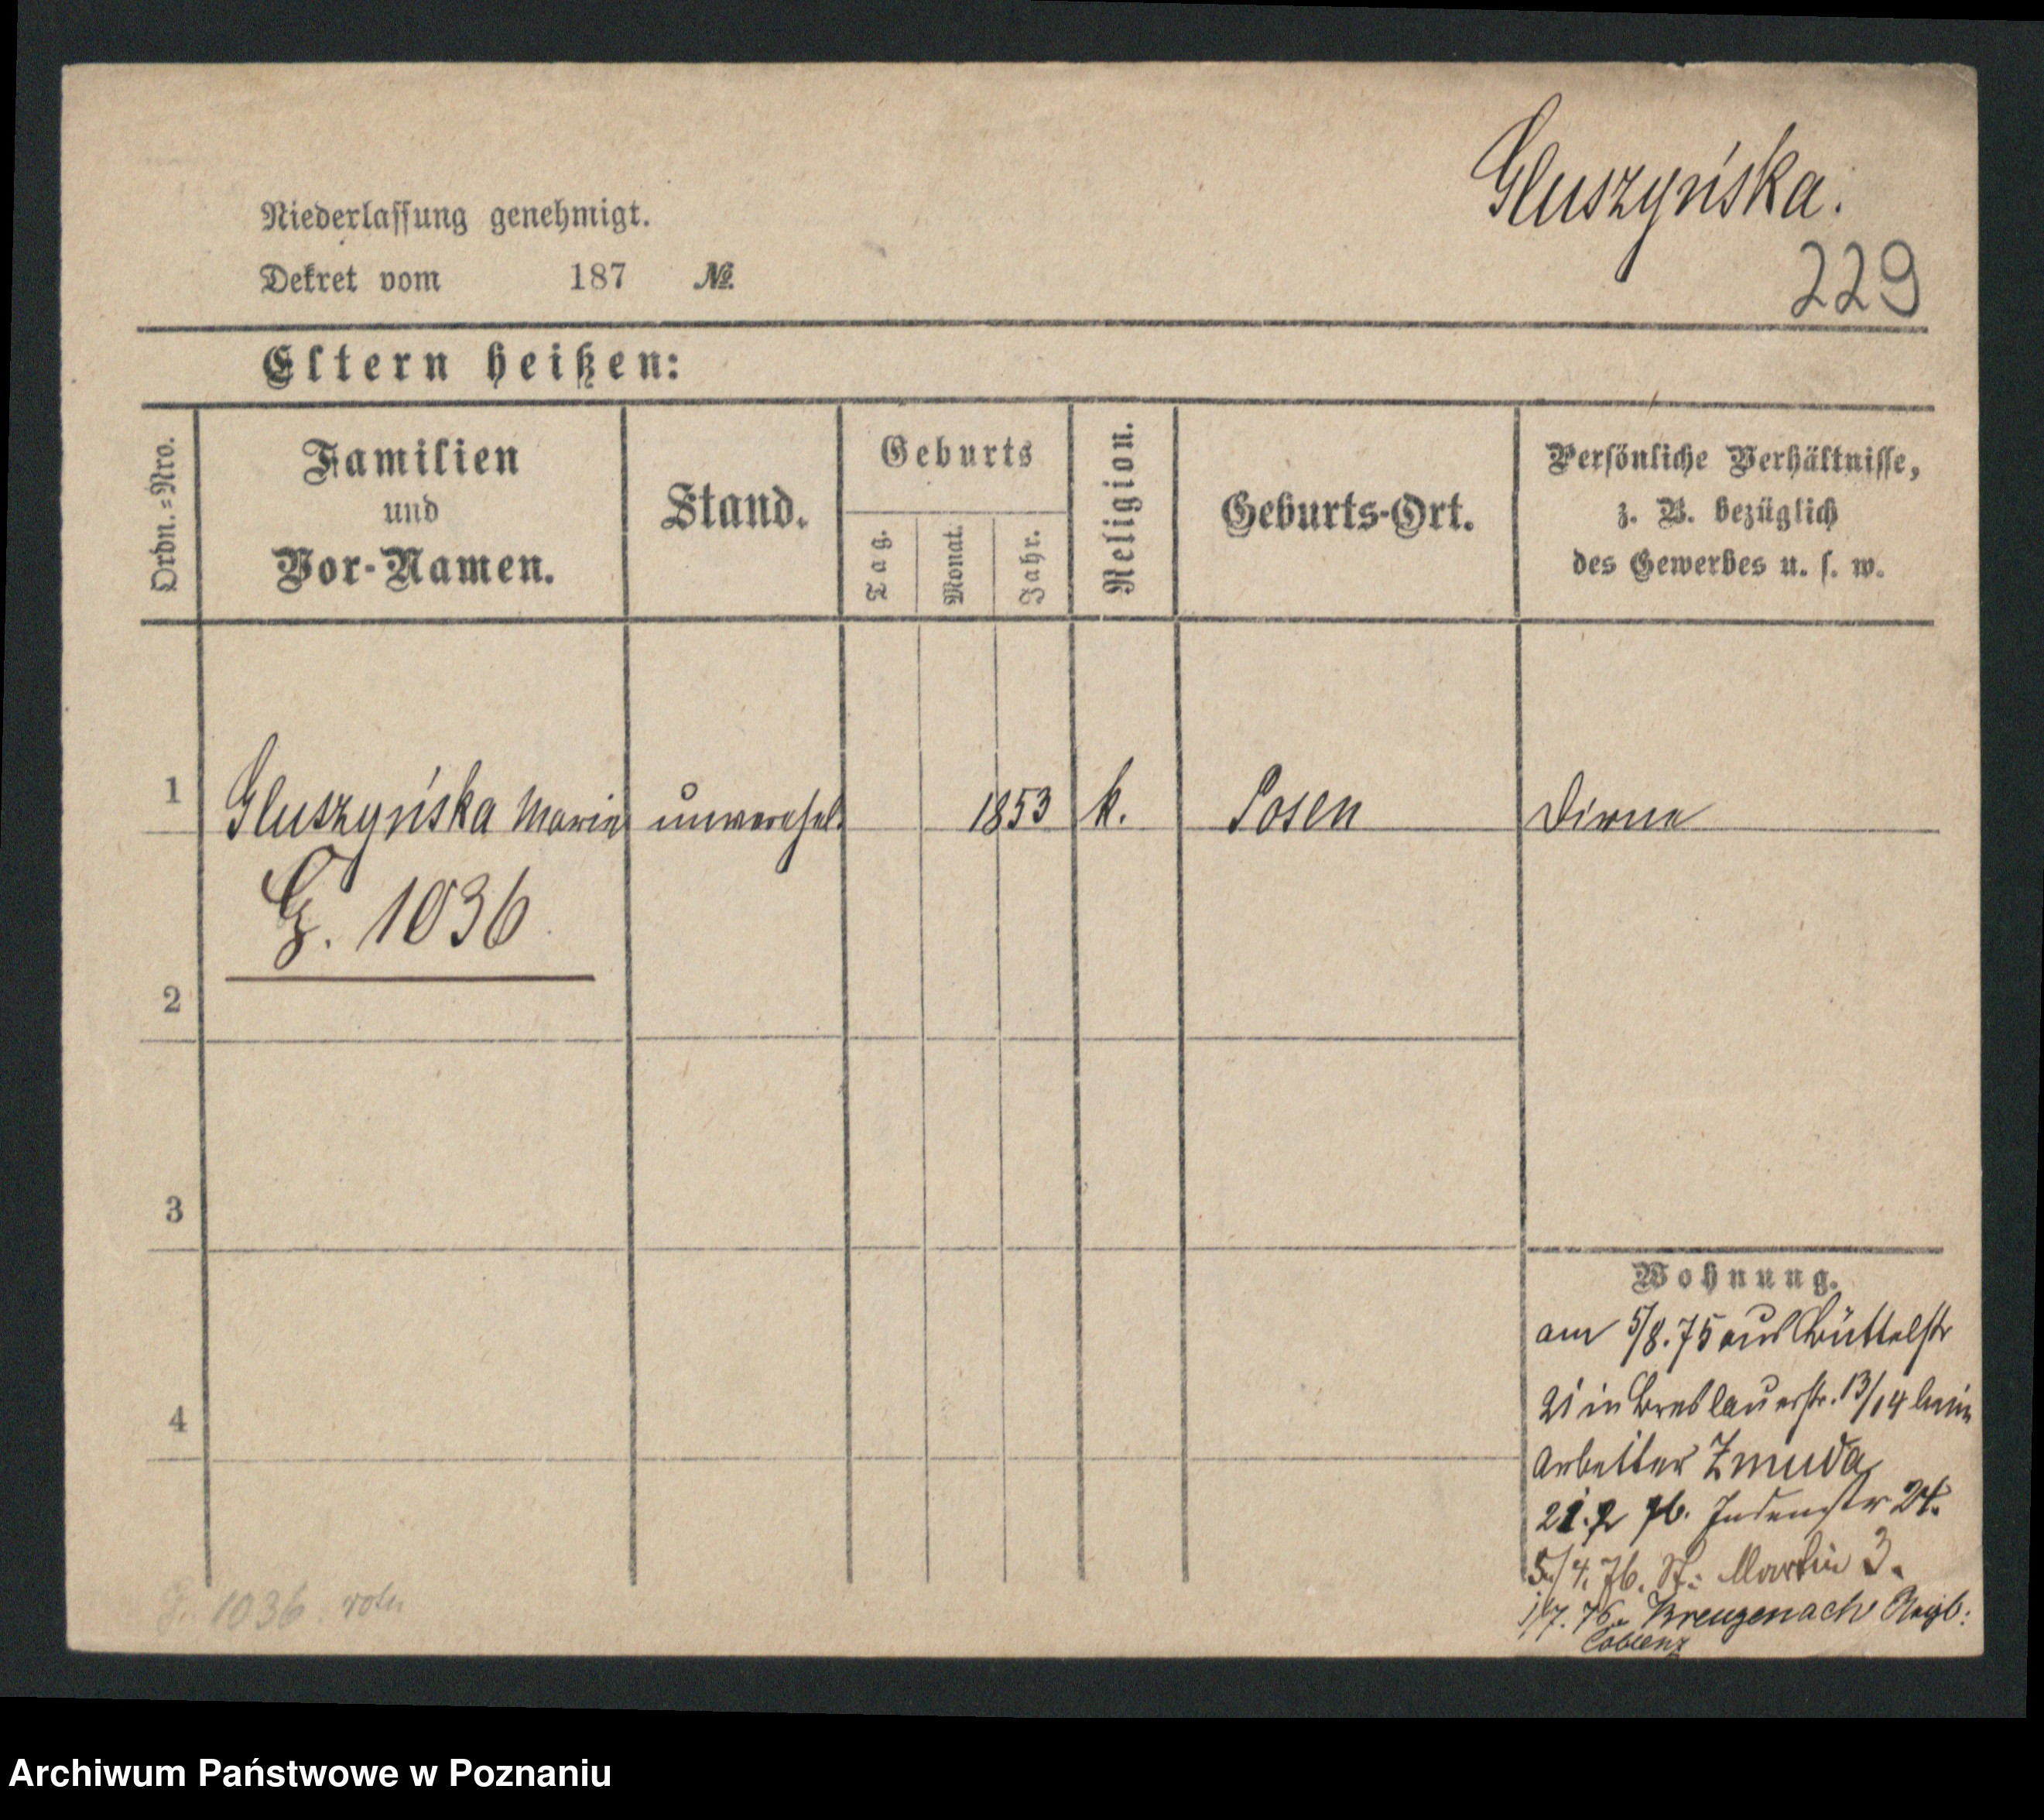 Gluszyńska.
229
Niederlassung genehmigt.
Dekret vom 187 №.
Eltern heißen:
Ordn.=Nro.
Familien
und
Vor-Namen.
Stand.
Geburts
Tag.
Monat.
Jahr.
Religion.
Geburts-Ort.
Persönliche Verhältnisse,
z. B. bezüglich
des Gewerbes u. s. w.
1 Gluszyńska Marie unverehel. 1853 k. Posen Dirne
G. 1036
2
3
4
Wohnung.
am 5/8.75 aus Büttelstr
21 in Breslauerstr. 13/14 beim
Arbeiter Zmuda
21.2 76. Judenstr 24.
5/4.76. St. Martin 3.
1/7.76. Kreuzenach
Coblenz
1036
Archiwum Państwowe w Poznaniu